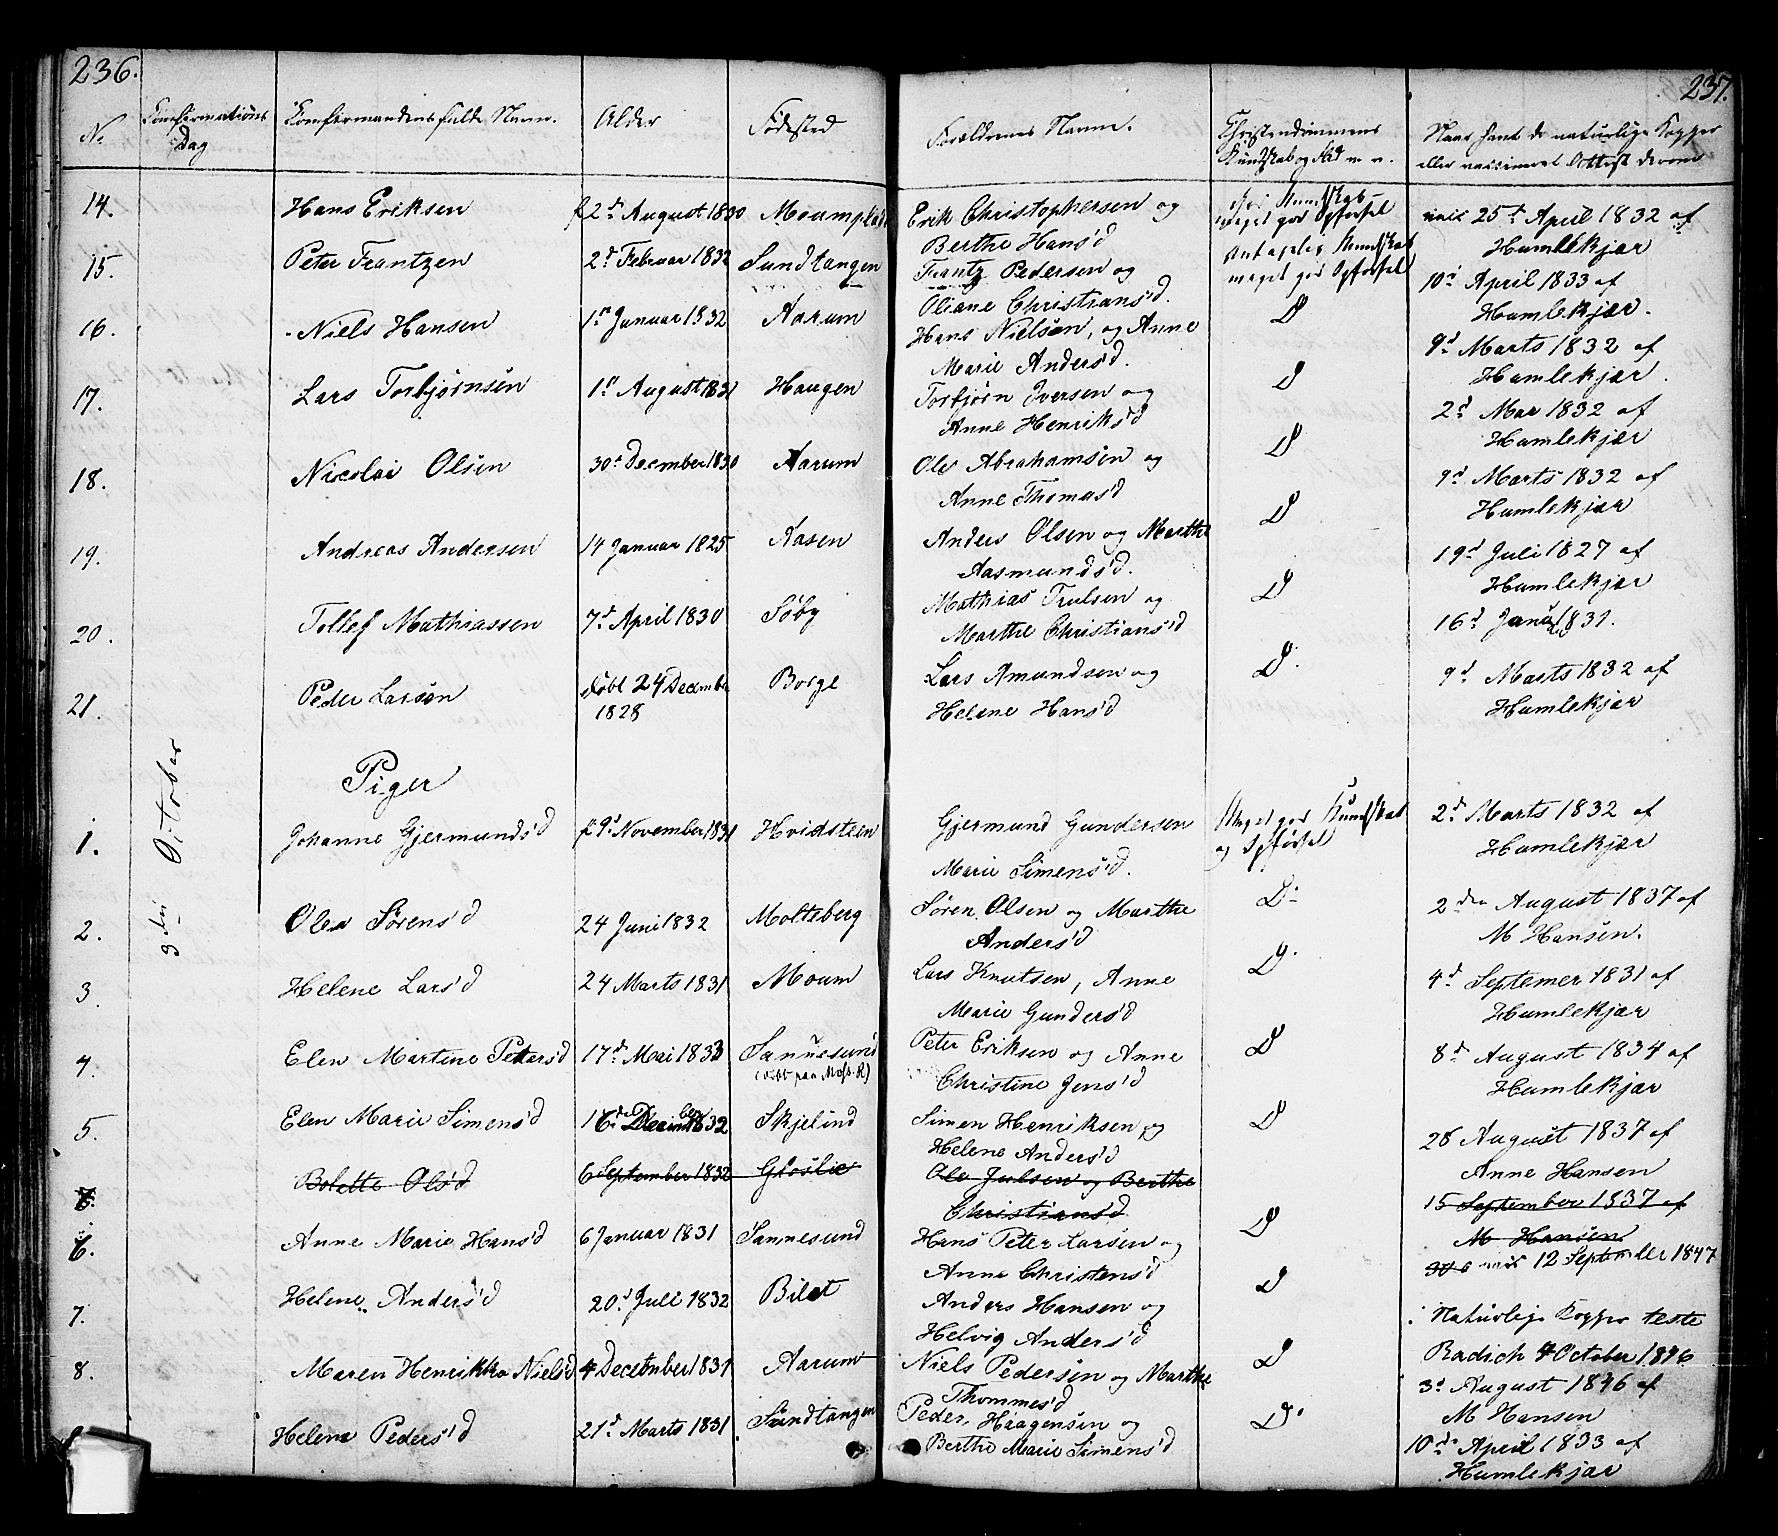 236.
237.
No.
Confirmations
Dag
Confirmandens fulde Navn.
Alder
Fødested
Forældrenes Navne.
Christendommens
Kundskab og Flid m. v.
Naar havt de naturlige Kopper
eller vaccineret Attest derom
14.
Hans Eriksen
f 2d August 1830
Moumplads
Erik Christophersen og
Berthe Hans'd
Kundskab
meget god Opførsel
vacc 25d April 1832 af
Humlekjær
15.
Peter Frantzen
2d Februar 1832
Sundtangen
Frantz Pedersen og
Oliane Christians'd.
Antagelig Kundskab
meget god Opførsel
10d April 1833 af
Humlekjær.
16.
Niels Hansen
1st Januar 1832
Aarum
Hans Nielsen, og Anne
Marie Anders'd.
D
9d Marts 1832 af
Humlekjær.
17.
Lars Torbjørnsen
1st August 1831
Haugen
Torbjørn Iversen og
Anne Henriks'd
D
2d Mar 1832 af
Humlekjær
18.
Nicolai Olsen
30te December 1830
Aarum
Ole Abrahamsen og
Anne Thomas'd
D
9d Marts 1832 af
Humlekjær
19.
Andreas Andersen
14 Januar 1825
Aasen
Anders Olsen og Marthe
Aasmunds'd.
D
19d Juli 1827 af
Humlekjær
20.
Tollef Mathiassen
7d April 1830
Søby
Mathias Trulsen og
Marthe Christians'd
D
16d Janu 1831.
21.
Peder Larsen
døbt 24 Decembr
1828
Borge
Lars Amundsen og
Helene Hans'd
D.
9d Marts 1832 af
Humlekjær
3die October
Piger
1.
Johanne Gjermunds'd
f 9d November 1831
Hvidsteen
Gjermund Gundersen
Marie Simens'd.
Meget god Kundskab
og Opførsel
2d Marts 1832 af
Humlekjær
2.
Olea Sørens'd
24 Juni 1832
Molteberg
Søren Olsen og Marthe
Anders'd
D.
2den August 1837 af
M Hansen.
3.
Helene Lars'd
24 Marts 1831
Moum
Lars Knutsen, Anne
Marie Gunders'd
D.
4d Septemer 1831 af
Humlekjær
4.
Elen Martine Peters'd
17d Mai 1833
Sannesund
(døbt paa Moss. K)
Peter Eriksen og Anne
Christine Jens'd
D
8d August 1834 af
Humlekjær
5.
Elen Marie Simens'd
16d Decembr 1832
Skjelind
Simen Henriksen og
Helene Anders'd
D
28 August 1837 af
Anne Hansen
Bolette Ols'd
6 September 1832
Grøslie
Ole Julsen og Berthe
Christians'd
15 September 1837 af
M Hansen
6.
Anne Marie Hans'd
6 Januar 1831
Sannesund
Hans Peter Larsen og
Anne Christens'd
D
12 September 1847
7.
Helene Anders'd
20d Juli 1832
Bilet
Anders Hansen og
Helvig Anders'd
D
Naturlige Kopper teste
Radich 4 October 1846
8.
Maren Henrikke Niels'd
4 December 1831
Aarum
Niels Pedersen og Marthe
Thommes'd
D
3d August 1846 af
M Hansen
Helene Peders'd
21d Marts 1831
Sundtangen
Peder Haagensen og
Berthe Marie Simens'd
D.
10d April 1833 af
Humlekjær